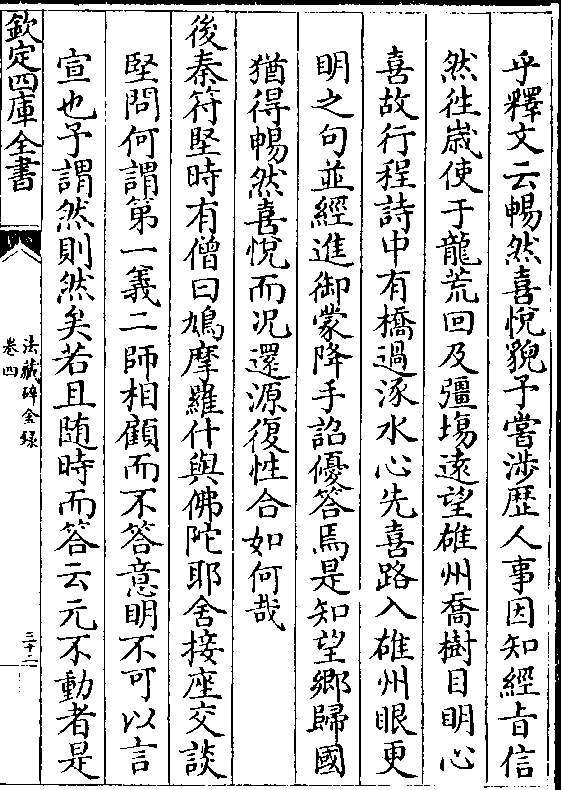 乎釋文云暢然喜悅貌予嘗涉歴人事因知經旨信
然徃歳使于龍荒回及彊場逺望碓州喬樹目明心
喜故行程詩中有橋過涿水心先喜路入碓州眼更
明之句並經進御蒙降手詔優答焉是知望鄉歸國
猶得暢然喜悅而况還源復性合如何哉
後秦符堅時有僧曰鳩摩羅什與佛陀耶舍接座交談
堅問何謂第一義二師相顧而不答意明不可以言
宣也予謂然則然矣若且随時而答云元不動者是
欽定四庫全書
法藏碎金録
卷四
三十二